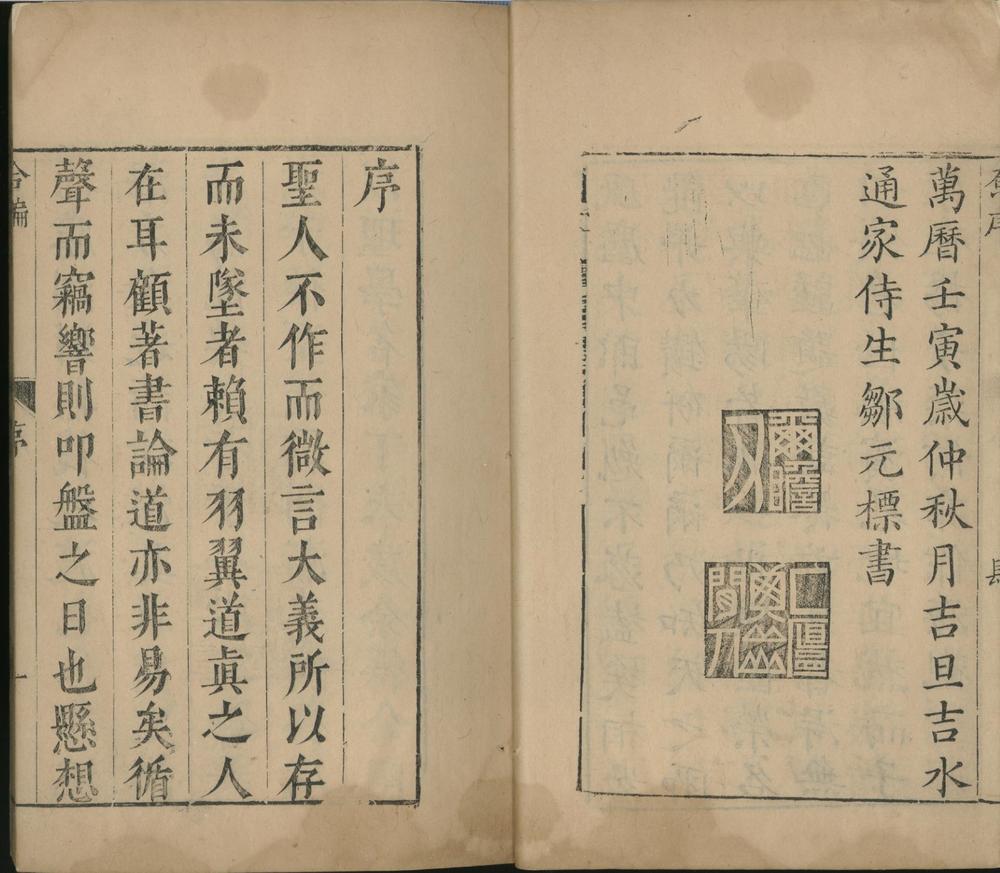 萬曆壬寅歲仲秋月吉旦吉水
通家侍生鄒元標書
爾瞻
序
聖人不作而微言大義所以存
而未墜者賴有羽翼道眞之人
在耳顧著書論道亦非易矣循
聲而竊響則叩盤之日也懸想
合編
序
一